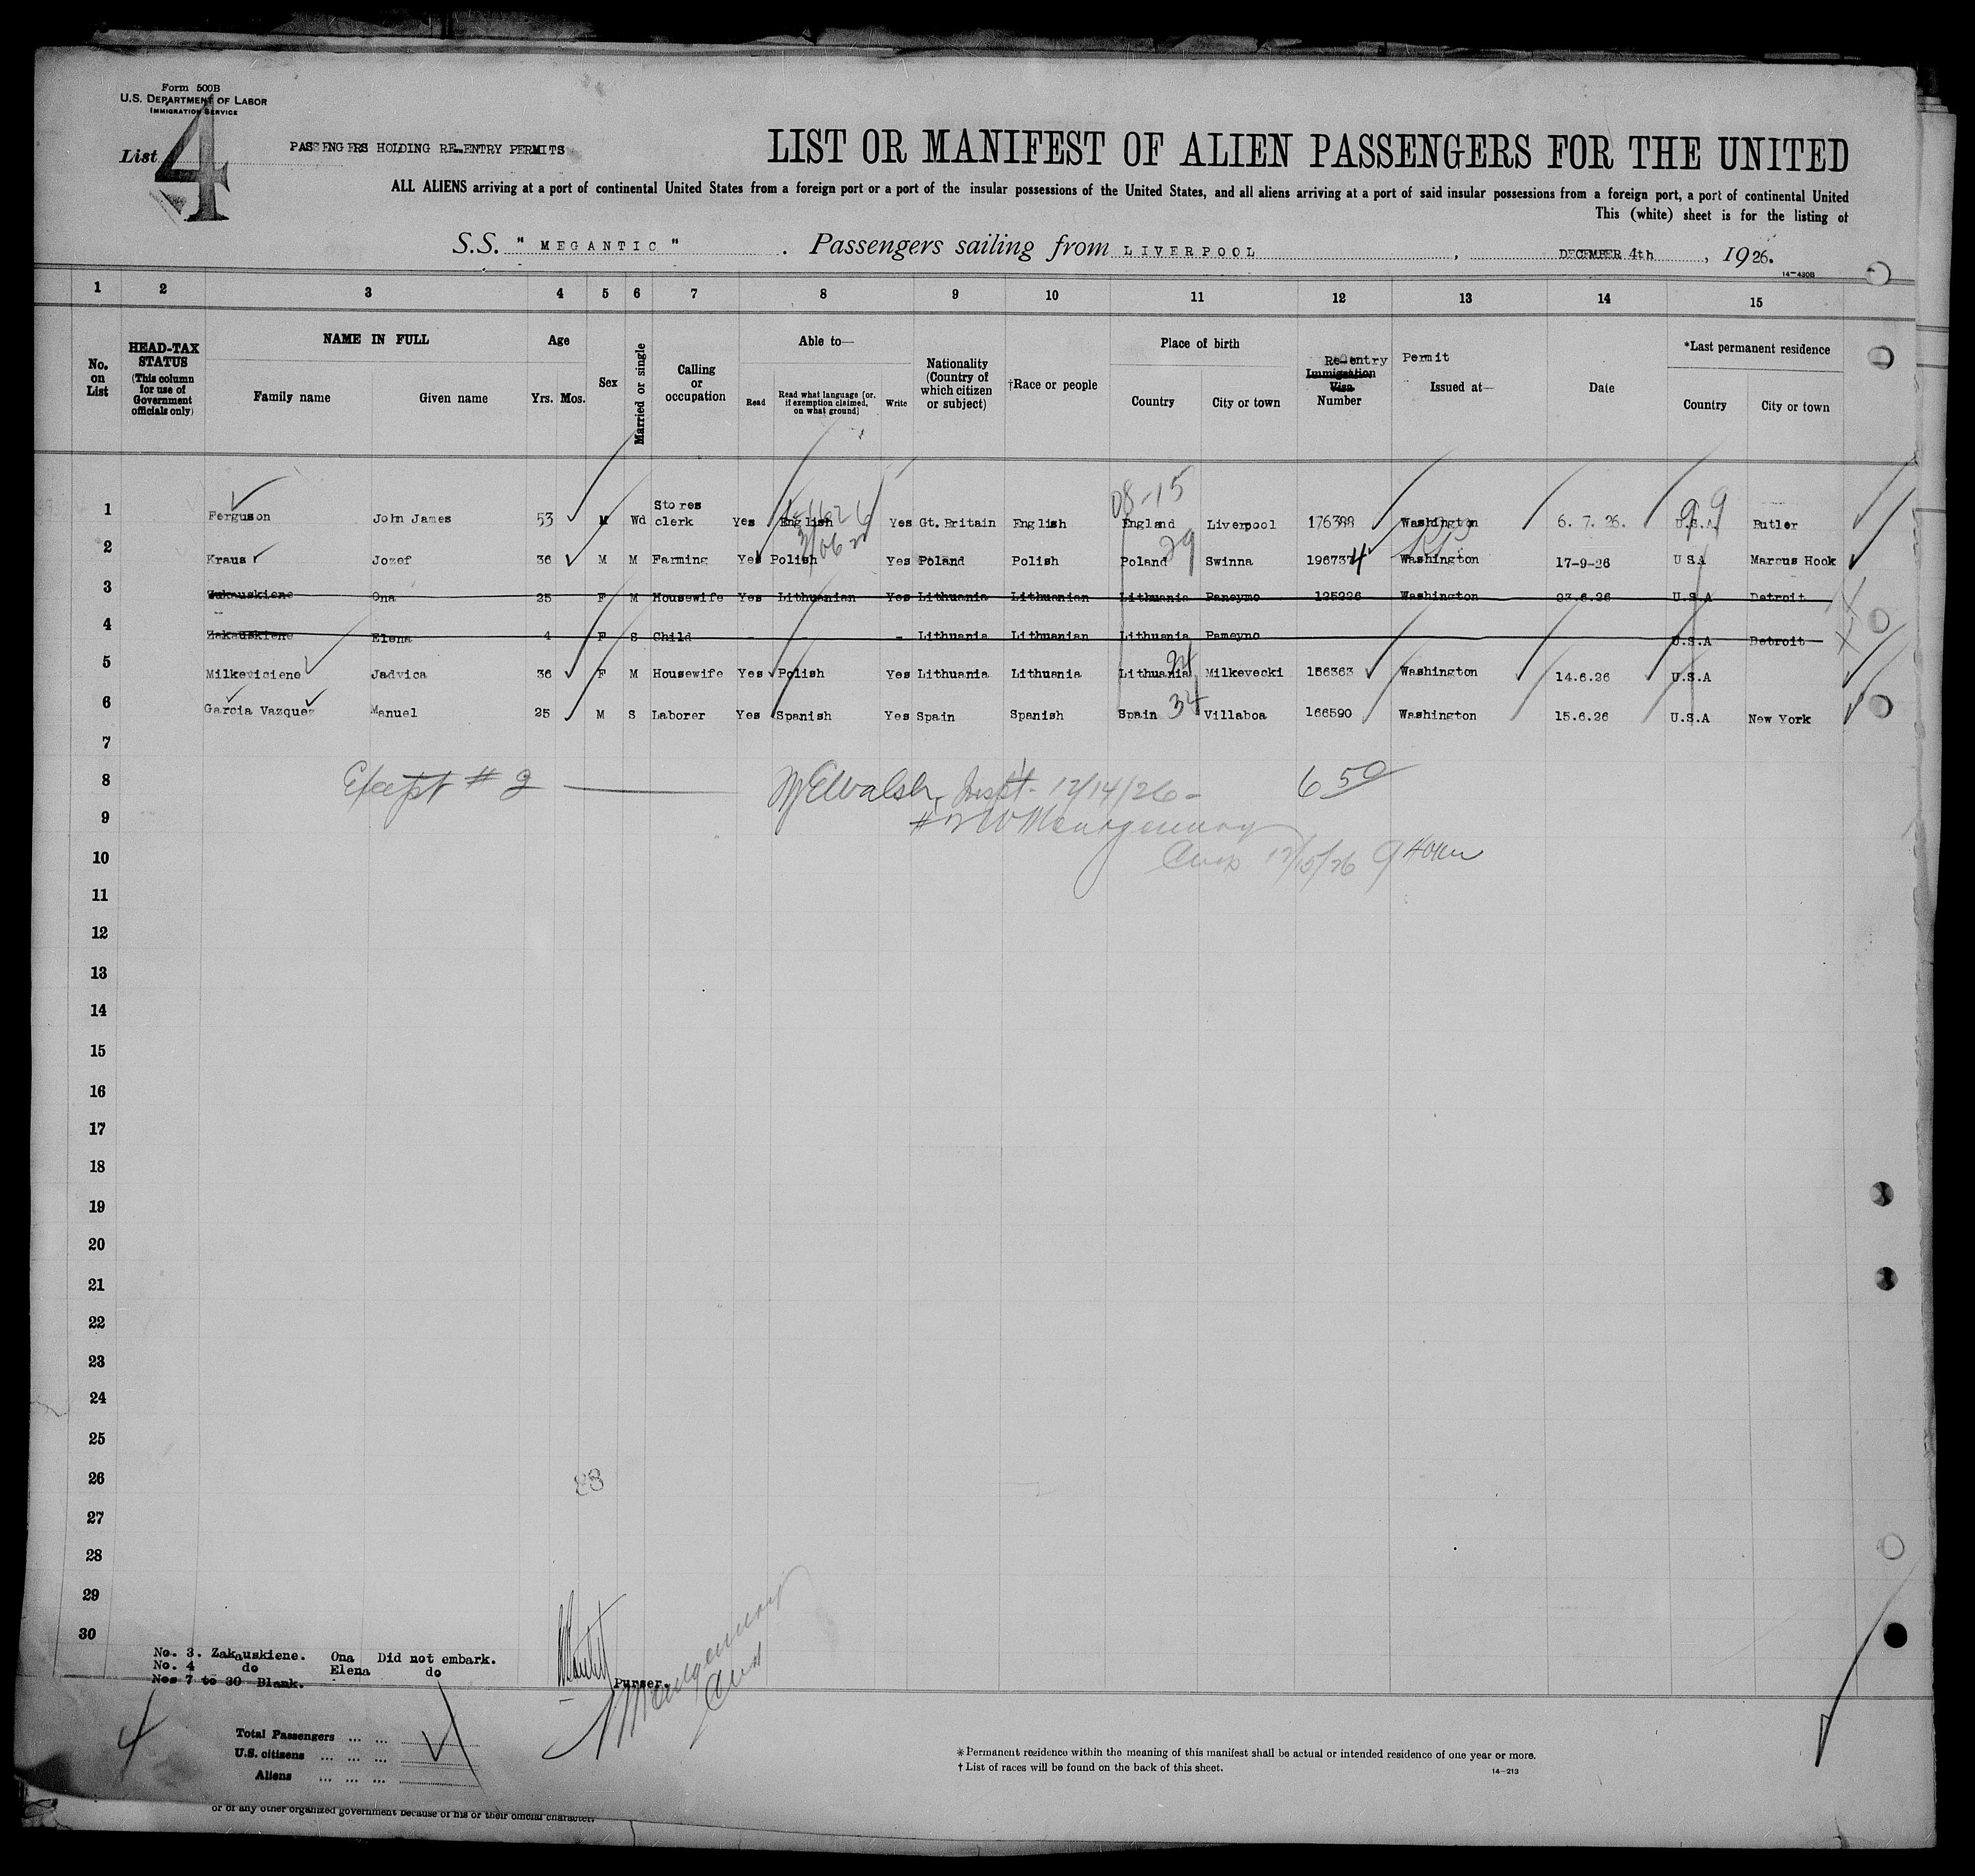 Form 500B
U.S. DEPARTMENT OF LABOR
IMMIGRATION SERVICE
List 4
PASSENGERS HOLDING RE-ENTRY PERMITS
LIST OR MANIFEST OF ALIEN PASSENGERS FOR THE UNITED
ALL ALIENS arriving at a port of continental United States from a foreign port or a port of the insular possessions of the United States, and all aliens arriving at a port of said insular possessions from a foreign port, a port of continental United
This (white) sheet is for the listing of
S.S. " MEGANTIC " . Passengers sailing from LIVERPOOL , DECEMBER 4th , 1926.
14-430B
1 2 3 4 5 6 7 8 9 10 11 12 13 14 15
No. on List
HEAD-TAX STATUS (This column for use of Government officials only)
NAME IN FULL
Family name Given name
Age
Yrs. Mos.
Sex
Married or single
Calling or occupation
Able to—
Read Read what language [or, if exemption claimed, on what ground] Write
Nationality (Country of which citizen or subject)
†Race or people
Place of birth
Country City or town
Re-entry Permit
Immigration Visa Number
Issued at—
Date
*Last permanent residence
Country City or town
08-15
1 Ferguson John James 53 M Wd Stores clerk Yes English Yes Gt. Britain English England Liverpool 176388 Washington 6. 7. 26. U.S.A Butler
99
2 Kraus Jozef 36 M M Farming Yes Polish Yes Poland Polish Poland 29 Swinna 196737 4 Washington 17-9-26 U S A Marcus Hook
3 Zukauskiene Ona 25 F M Housewife Yes Lithuanian Yes Lithuania Lithuanian Lithuania Paneymo 125226 Washington 23.6.26 U.S.A Detroit
4 Zakauskiene Elena 4 F S Child - - - Lithuania Lithuanian Lithuania Pameyno U.S.A Detroit
5 Milkeviciene Jadvica 36 F M Housewife Yes Polish Yes Lithuania Lithuania Lithuania Milkevecki 156363 Washington 14.6.26 U.S.A
6 Garcia Vazquez Manuel 25 M S Laborer Yes Spanish Yes Spain Spanish Spain 34 Villaboa 166590 Washington 15.6.26 U.S.A New York
7
8 Except # 2 Walsh, Inspt- 12/14/26- 6 50
9 Montgomery
10 12/15/26
11
12
13
14
15
16
17
18
19
20
21
22
23
24
25
26 88
27
28
29
30
No. 3. Zakauskiene. Ona Did not embark.
No. 4 do Elena do
Nos 7 to 30 Blank.
Purser.
Montgomery
4
Total Passengers ... ...
U.S. citizens ... ... ...
Aliens ... ... ...
* Permanent residence within the meaning of this manifest shall be actual or intended residence of one year or more.
† List of races will be found on the back of this sheet.
14-213
or of any other organized government because of his or their official character.